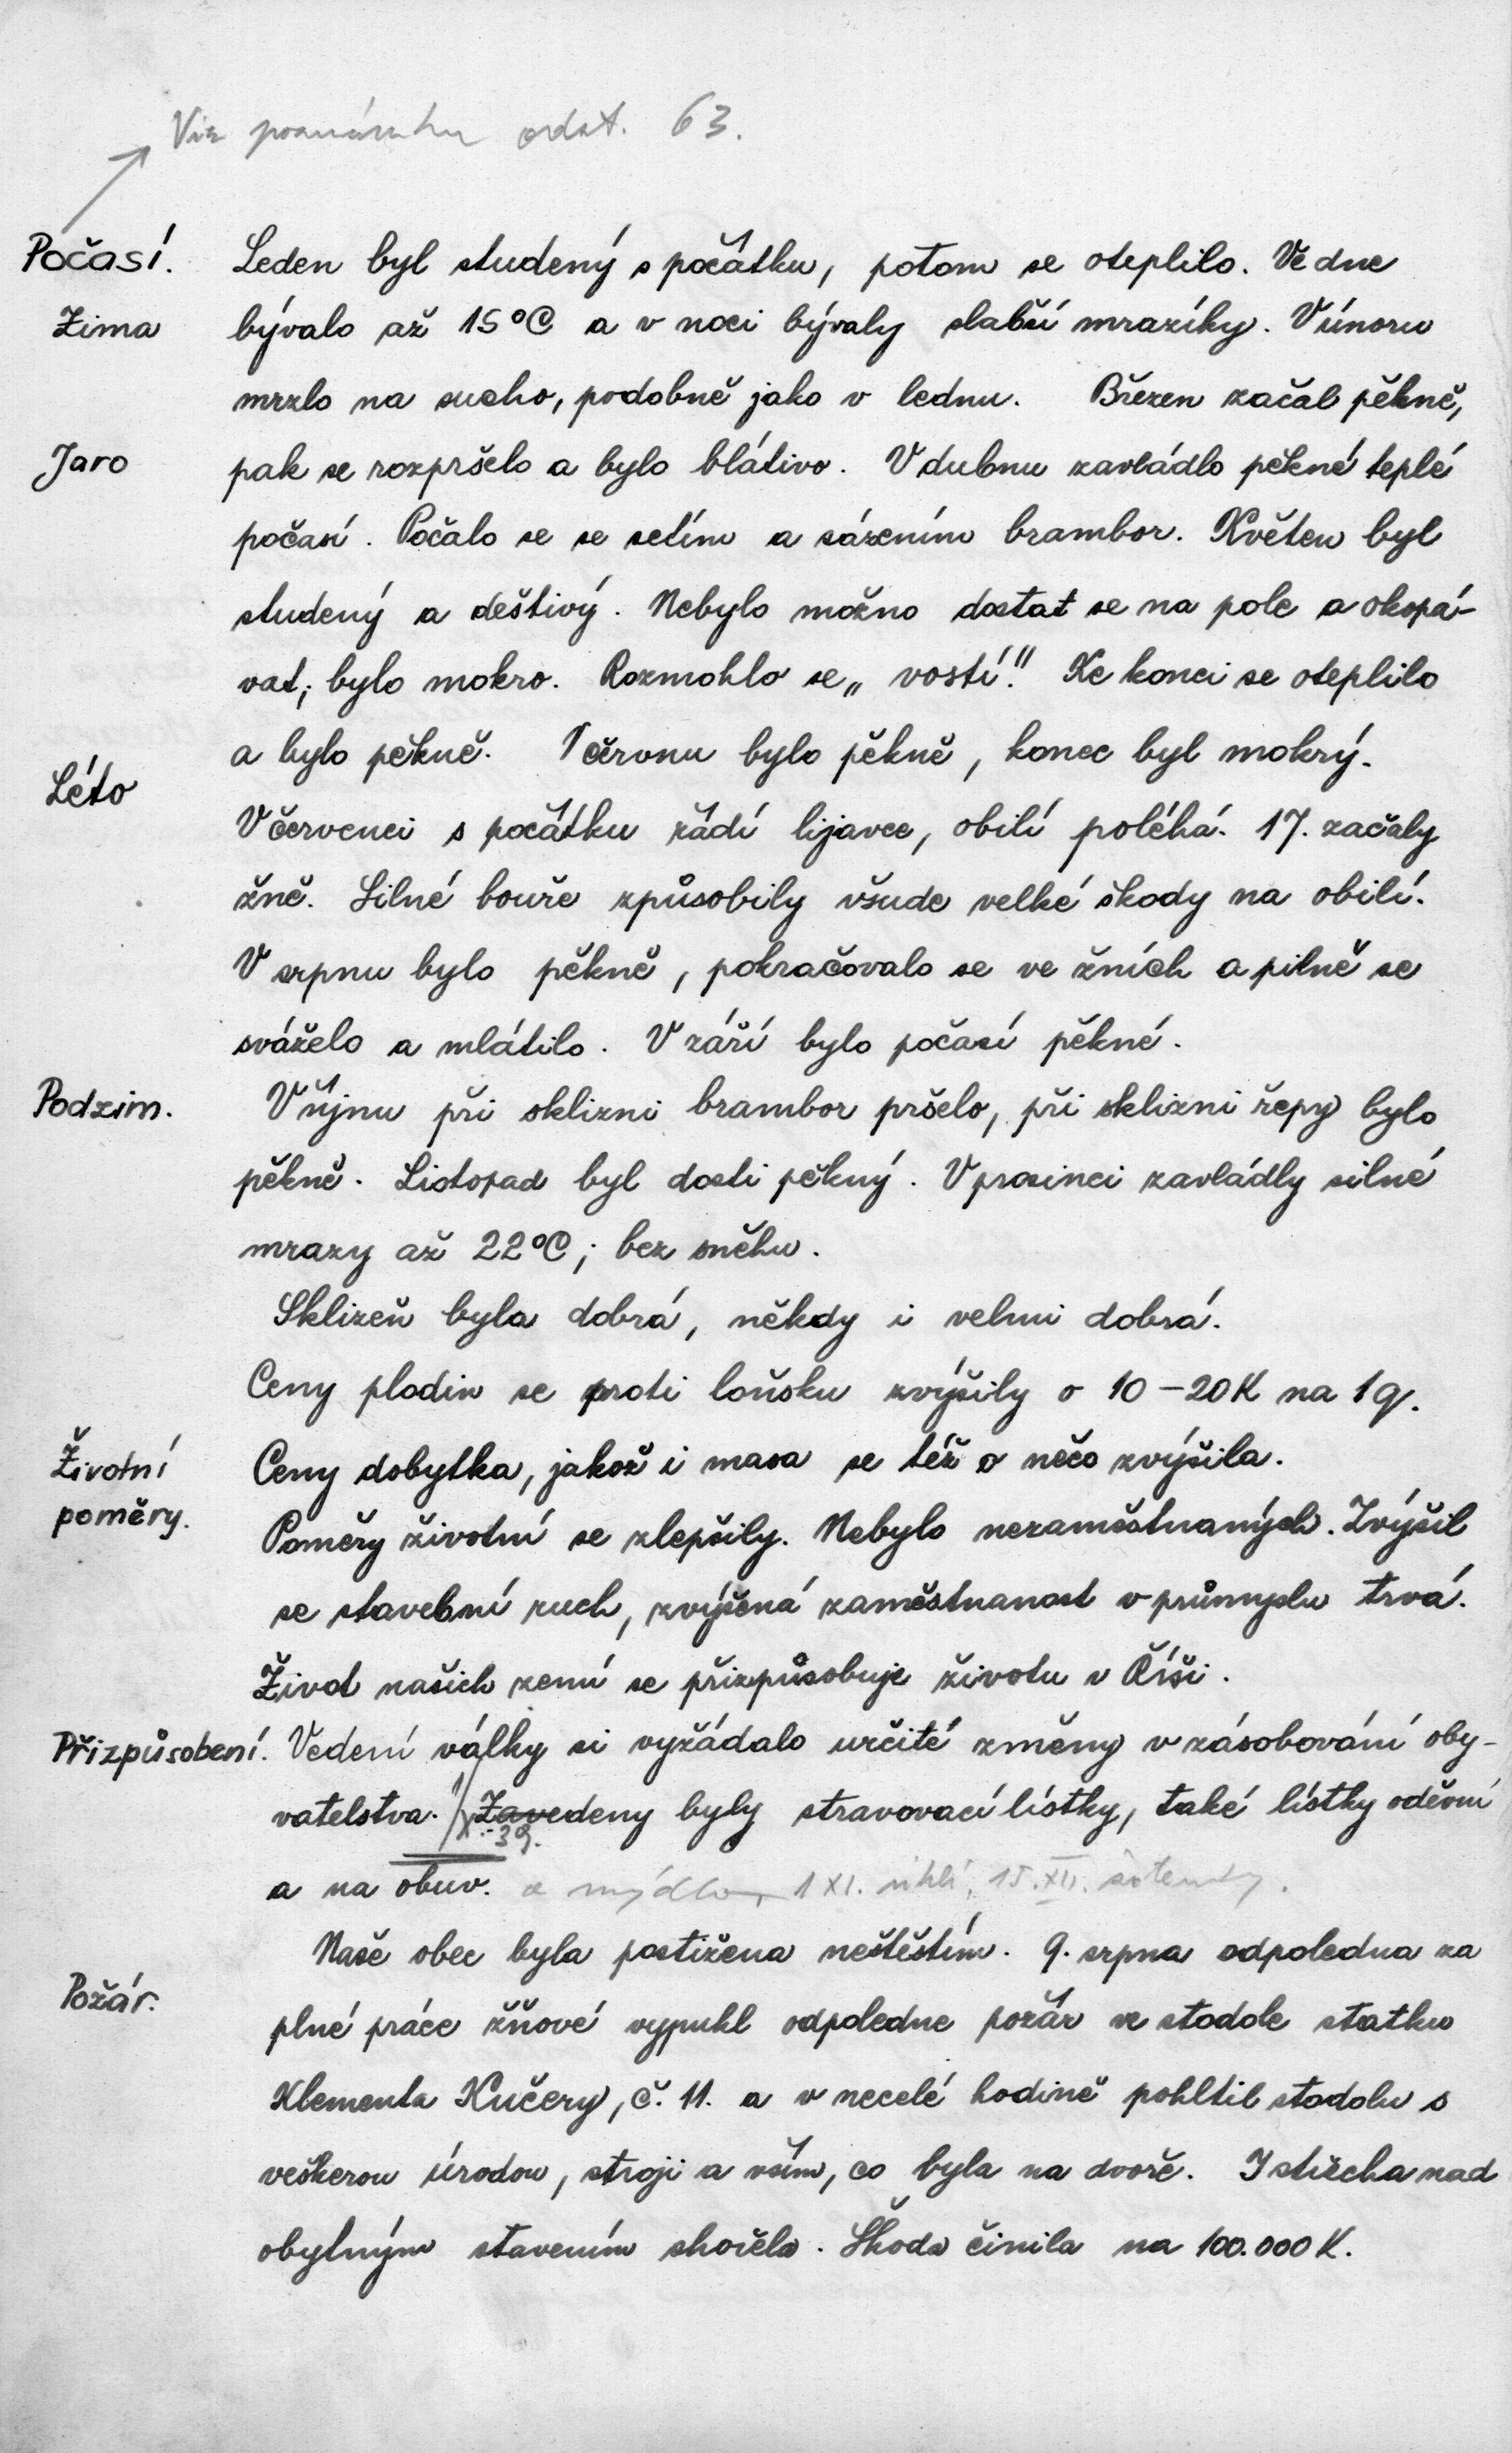 Viz poznámku odst. 63.
Počasí. Leden byl studený s počátku, potom se oteplilo. Ve dne
Zima bývalo až 15°C a v noci bývaly slabší mrazíky. V únoru
mrzlo na sucho, podobně jako v lednu. Březen začal pěkně,
Jaro pak se rozpršelo a bylo blátivo. V dubnu zavládlo pěkné teplé
počasí. Počalo se se setím a sázením brambor. Květen byl
studený a deštivý. Nebylo možno dostat se na pole a okopá-
vat; bylo mokro. Rozmohlo se „vostí". Ke konci se oteplilo
a bylo pěkně. V červnu bylo pěkně, konec byl mokrý.
Léto
V červenci s počátku řádí lijavce, obilí poléhá. 17. začaly
žně. Silné bouře způsobily všude velké škody na obilí.
V srpnu bylo pěkně, pokračovalo se ve žních a pilně se
sváželo a mlátilo. V září bylo počasí pěkné.
Podzim. V říjnu při sklizni brambor pršelo, při sklizni řepy bylo
pěkně. Listopad byl dosti pěkný. V prosinci zavládly silné
mrazy až 22°C; bez sněhu.
Sklizeň byla dobrá, někdy i velmi dobrá.
Ceny plodin se proti loňsku zvýšily o 10-20K na 1q.
Životní Ceny dobytka, jakož i masa se též o něco zvýšila.
poměry. Poměry životní se zlepšily. Nebylo nezaměstnaných. Zvýšil
se stavební ruch, zvýšená zaměstnanost v průmyslu trvá.
Život našich zemí se přizpůsobuje životu v Říši.
Přizpůsobení. Vedení války si vyžádalo určité změny v zásobování oby-
vatelstva. Zavedeny byly stravovací lístky, také lístky oděvní
39.
a na obuv. a mýdlo, 1 XI. uhlí, 15. XII.
Naše obec byla postižena neštěstím. 9. srpna odpoledna za
Požár. plné práce žňové vypukl odpoledne požár ve stodole statku
Klementa Kučery, č. 11. a v necelé hodině pohltil stodolu s
veškerou úrodou, stroji a vším, co byla na dvoře. I střecha nad
obytným stavením shořela. Škoda činila na 100.000 K.